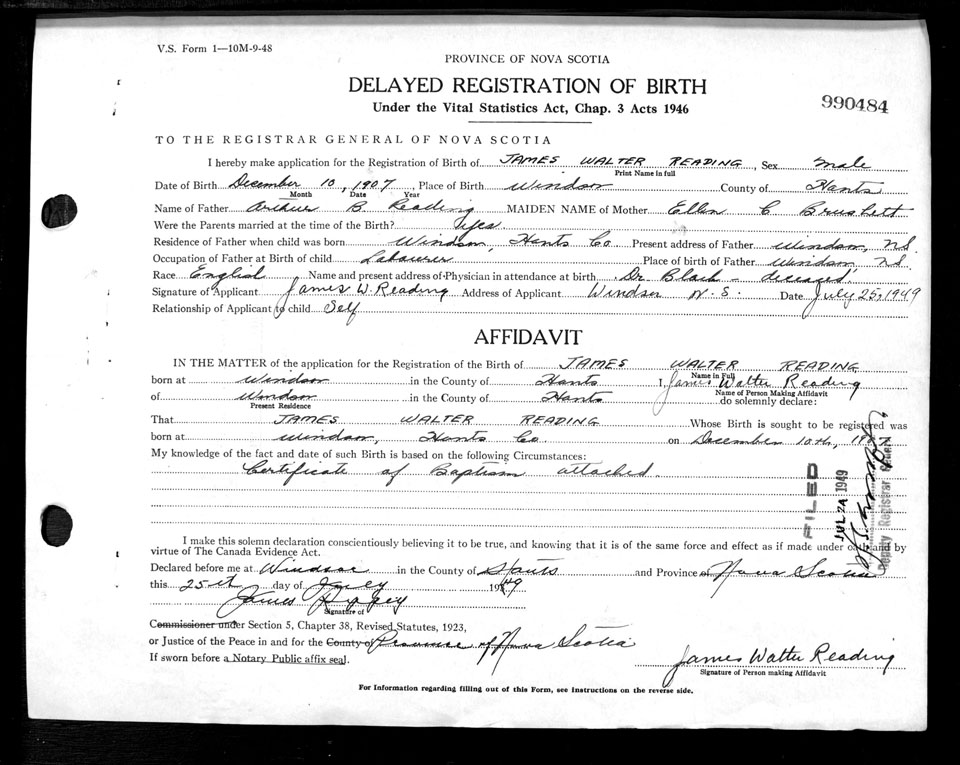 V.S. Form 1—10M-9-48
PROVINCE OF NOVA SCOTIA
DELAYED REGISTRATION OF BIRTH
Under the Vital Statistics Act, Chap. 3 Acts 1946
990484
TO THE REGISTRAR GENERAL OF NOVA SCOTIA
I hereby make application for the Registration of Birth of JAMES WALTER READING, Sex male
Print Name in full
Date of Birth December 10, 1907, Place of Birth Windsor County of Hants
Month Date Year
Name of Father Arthur B. Reading MAIDEN NAME of Mother Ellen C Brushett
Were the Parents married at the time of the Birth? Yes.
Residence of Father when child was born Windsor, Hants Co Present address of Father Windsor, N.S.
Occupation of Father at Birth of child Labourer Place of birth of Father Windsor, N.S.
Race English Name and present address of Physician in attendance at birth Dr Black - deceased.
Signature of Applicant James W. Reading Address of Applicant Windsor N.S. Date July 25, 1949
Relationship of Applicant to child Self
AFFIDAVIT
IN THE MATTER of the application for the Registration of the Birth of JAMES WALTER READING
Name in Full
born at Windsor in the County of Hants I, James Walter Reading
Name of Person Making Affidavit
of Windsor in the County of Hants do solemnly declare:
Present Residence
That JAMES WALTER READING Whose Birth is sought to be registered was
born at Windsor, Hants Co on December 10th, 1907
My knowledge of the fact and date of such Birth is based on the following Circumstances:
Certificate of Baptism attached.
FILED
JUL 2A 1949
Deputy Registrar General
I make this solemn declaration conscientiously believing it to be true, and knowing that it is of the same force and effect as if made under oath and by
virtue of The Canada Evidence Act.
Declared before me at Windsor in the County of Hants and Province of Nova Scotia
this 25th day of July 1949
James
Signature of
Commissioner under Section 5, Chapter 38, Revised Statutes, 1923,
or Justice of the Peace in and for the County of Province of Nova Scotia
If sworn before a Notary Public affix seal.
James Walter Reading
Signature of Person making Affidavit
For Information regarding filling out of this Form, see Instructions on the reverse side.